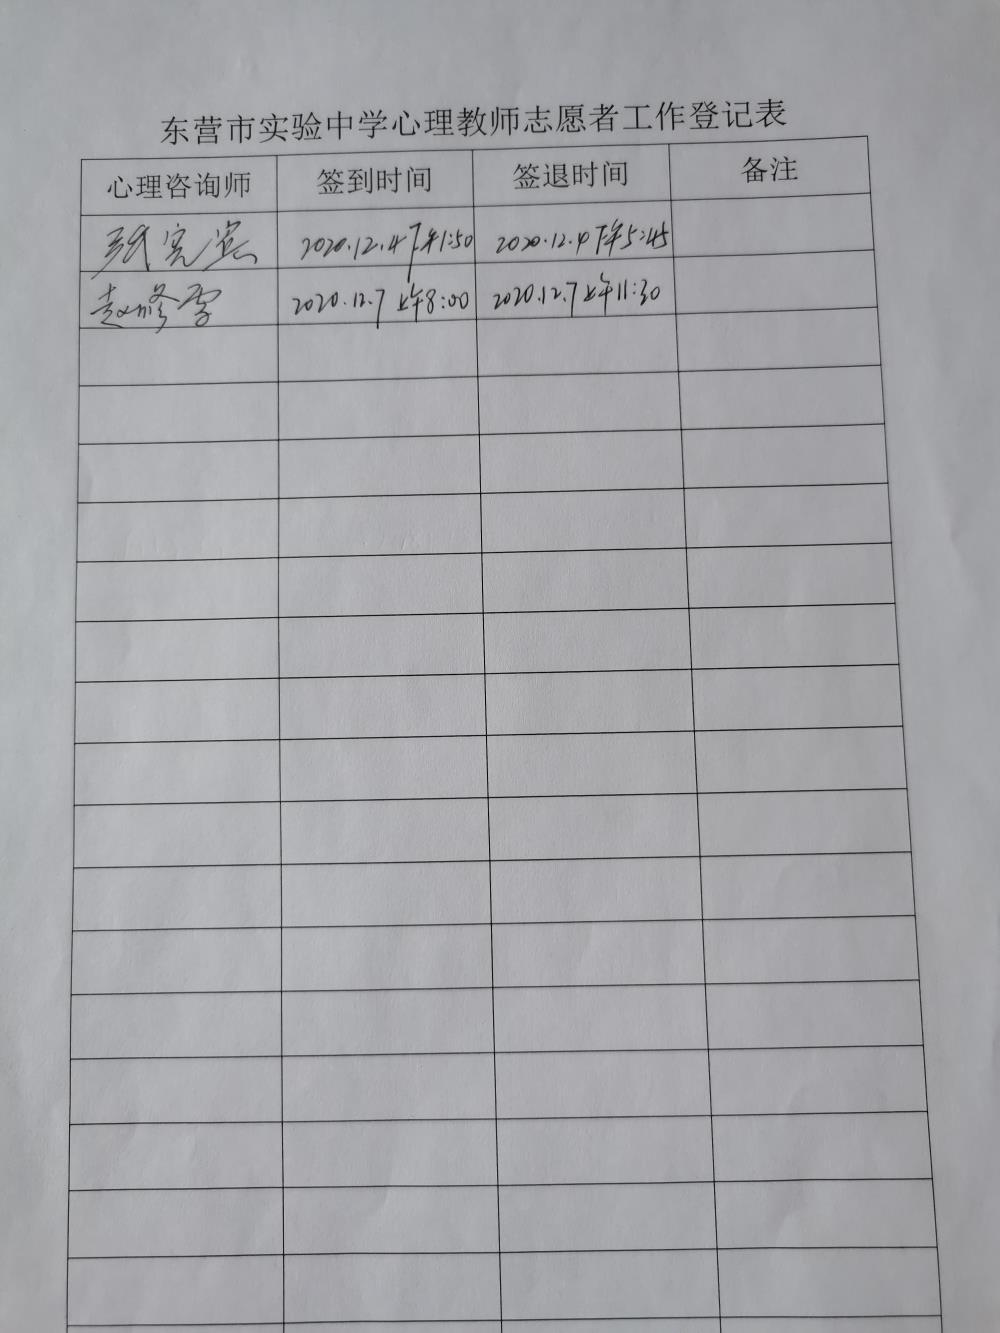 东营市实验中学心理教师志愿者工作登记表
心理咨询师 签到时间 签退时间 备注
张 2020.12.4 下午1:50 2020.12.4 下午5:45
赵修 2020.12.7 上午8:00 2020.12.7 上午11:30